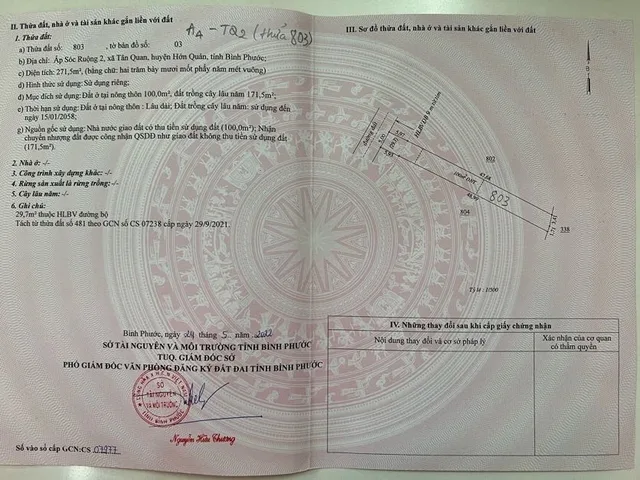 II. Thửa đất, nhà ở và tài sản khác gắn liền với đất
A4 - TQ2 (thửa 803)
1. Thửa đất:
a) Thửa đất số: 803 , tờ bản đồ số: 03
b) Địa chỉ: Ấp Sóc Ruộng 2, xã Tân Quan, huyện Hớn Quản, tỉnh Bình Phước.
c) Diện tích: 271,5m², (bằng chữ: hai trăm bảy mươi mốt phẩy năm mét vuông)
d) Hình thức sử dụng: Sử dụng riêng;
đ) Mục đích sử dụng: Đất ở tại nông thôn 100,0m², đất trồng cây lâu năm 171,5m².
e) Thời hạn sử dụng: Đất ở tại nông thôn : Lâu dài; Đất trồng cây lâu năm: sử dụng đến
ngày 15/01/2058
g) Nguồn gốc sử dụng: Nhà nước giao đất có thu tiền sử dụng đất (100,0m²); Nhận
chuyển nhượng đất được công nhận QSDĐ như giao đất không thu tiền sử dụng đất
(171,5m²).
2. Nhà ở: -/-
3. Công trình xây dựng khác: -/-
4. Rừng sản xuất là rừng trồng: -/-
5. Cây lâu năm: -/-
6. Ghi chú:
29,7m² thuộc HLBV đường bộ
Tách từ thửa đất số 481 theo GCN số CS 07238 cấp ngày 29/9/2021.
Bình Phước, ngày 24 tháng 5 năm 2022
SỞ TÀI NGUYÊN VÀ MÔI TRƯỜNG TỈNH BÌNH PHƯỚC
TUQ. GIÁM ĐỐC SỞ
PHÓ GIÁM ĐỐC VĂN PHÒNG ĐĂNG KÝ ĐẤT ĐAI TỈNH BÌNH PHƯỚC
SỞ
TÀI NGUYÊN
VÀ MÔI TRƯỜNG
TỈNH BÌNH PHƯỚC
Nguyễn Hữu Chương
Số vào sổ cấp GCN:CS 07977
III. Sơ đồ thửa đất, nhà ở và tài sản khác gắn liền với đất
đường đất
802
47.88
803
804
338
Tỷ lệ : 1/000
IV. Những thay đổi sau khi cấp giấy chứng nhận
Nội dung thay đổi và cơ sở pháp lý
Xác nhận của cơ quan
có thẩm quyền